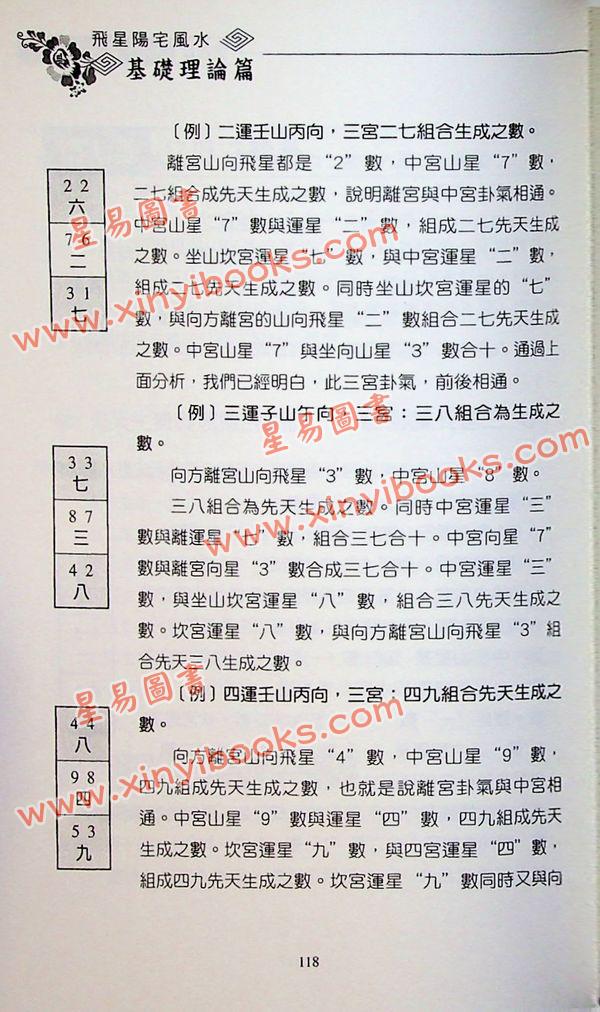 飛星陽宅風水
基礎理論篇
〔例〕二運壬山丙向，三宮二七組合生成之數。
離宮山向飛星都是“2”數，中宮山星“7”數，
二七組合成先天生成之數，說明離宮與中宮卦氣相通。
中宮山星“7”數與運星“二”數，組成二七先天生成
之數。坐山坎宮運星“七”數，與中宮運星“二”數，
組成二七先天生成之數。同時坐山坎宮運星的“七”
數，與向方離宮的山向飛星“二”數組合二七先天生成
之數。中宮山星“7”與坐向山星“3”數合十。通過上
面分析，我們已經明白，此三宮卦氣，前後相通。
2 2
六
7 6
二
3 1
七
〔例〕三運子山午向，三宮：三八組合為生成之
數。
向方離宮山向飛星“3”數，中宮山星“8”數。
三八組合為先天生成之數。同時中宮運星“三”
數與離運星“七”數，組合三七合十。中宮向星“7”
數與離宮向星“3”數合成三七合十。中宮運星“三”
數，與坐山坎宮運星“八”數，組合三八先天生成之
數。坎宮運星“八”數，與向方離宮山向飛星“3”組
合先天三八生成之數。
3 3
七
8 7
三
4 2
八
〔例〕四運壬山丙向，三宮：四九組合先天生成之
數。
向方離宮山向飛星“4”數，中宮山星“9”數，
四九組成先天生成之數，也就是說離宮卦氣與中宮相
通。中宮山星“9”數與運星“四”數，四九組成先天
生成之數。坎宮運星“九”數，與四宮運星“四”數，
組成四九先天生成之數。坎宮運星“九”數同時又與向
4 4
八
9 8
四
5 3
九
118
星易圖書
www.xinyibooks.com
星易圖書
www.xinyibooks.com
星易圖書
www.xinyibooks.com